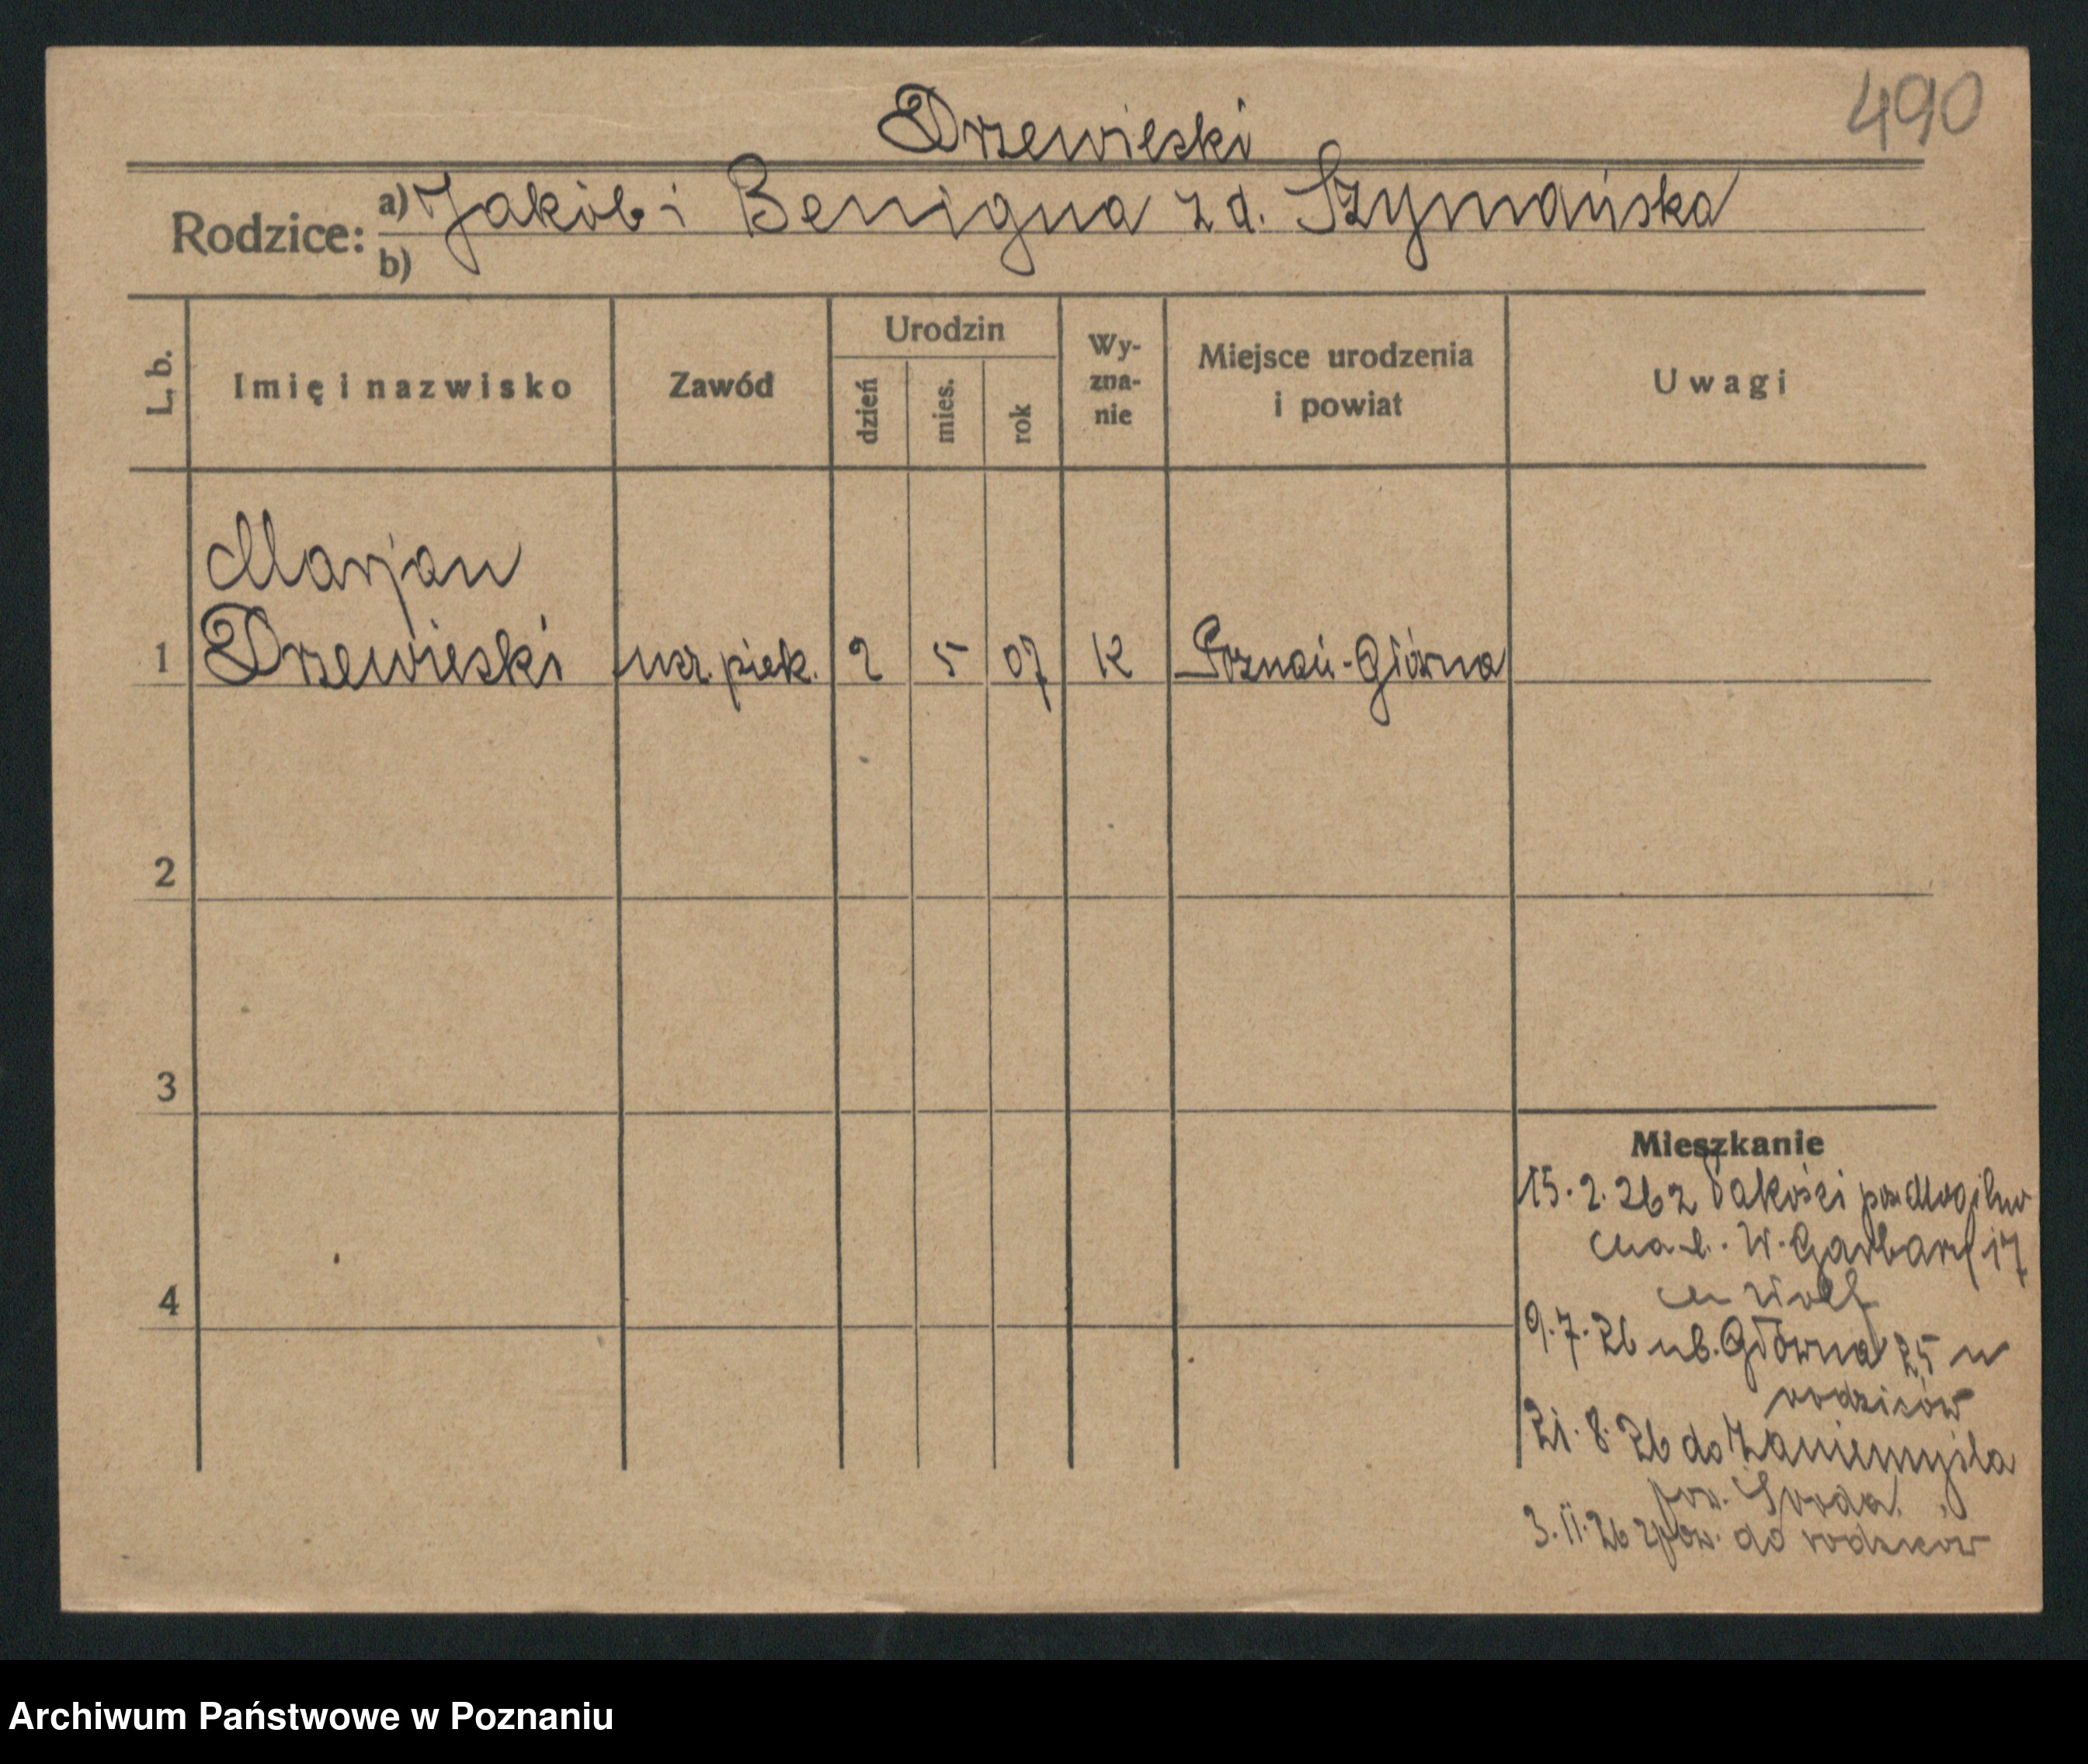 490
Drzewieski
Rodzice: a) Jakób i Benigna z d. Szymańska
b)
L. b. Imię i nazwisko Zawód Urodzin dzień mies. rok Wy-zna-nie Miejsce urodzenia i powiat Uwagi
Marjan
1 Drzewieski ucz. piek. 2 5 07 K Poznań-Główna
2
3
Mieszkanie
15.2.26 z Pakości pow Mogilno
W. Garbary 17
4
9.7.26 ul. Główna 25 u
rodziców
21.8.26 do Zaniemyśla
pow. Środa
3.11.26 z pow. do rodziców
Archiwum Państwowe w Poznaniu